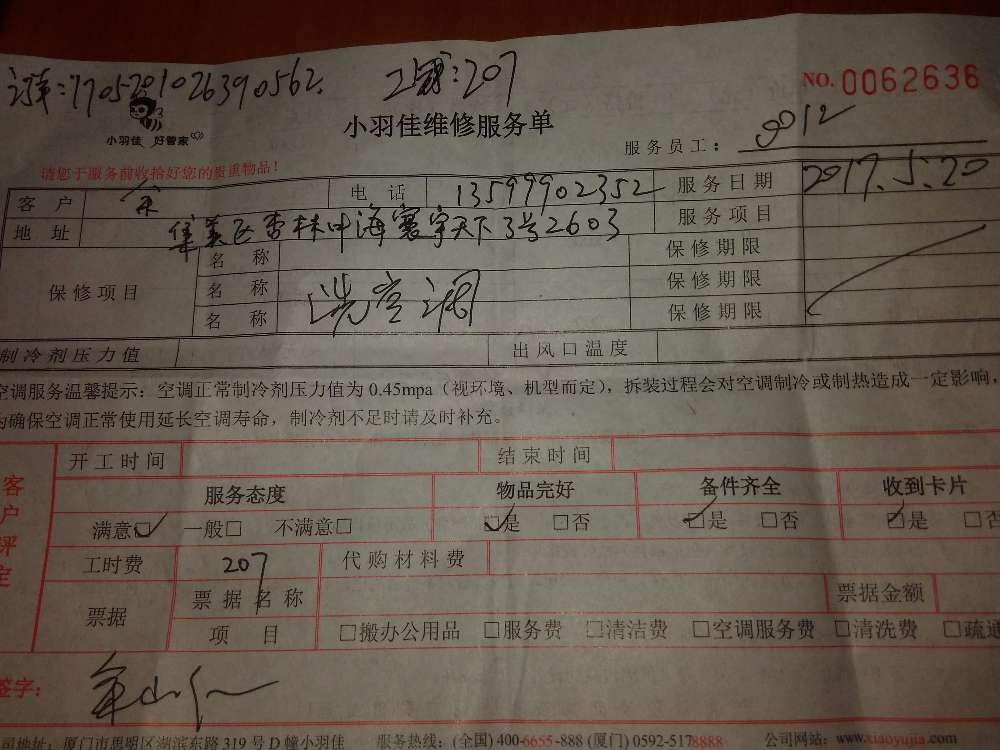 1705201026390562. 207
NO. 0062636
小羽佳 好管家
小羽佳维修服务单
服务员工: 9012
请您于服务前收拾好您的贵重物品!
客户 电话 13599902352 服务日期 2017.5.20
地址 集美区杏林中海寰宇天下3号2603 服务项目
保修项目 名称 保修期限
名称 洗空调 保修期限
名称 保修期限
制冷剂压力值 出风口温度
空调服务温馨提示: 空调正常制冷剂压力值为 0.45mpa (视环境、机型而定), 拆装过程会对空调制冷或制热造成一定影响,
为确保空调正常使用延长空调寿命, 制冷剂不足时请及时补充。
开工时间 结束时间
客户评定
服务态度 物品完好 备件齐全 收到卡片
满意☑ 一般□ 不满意□ ☑是 □否 ☑是 □否 ☑是 □否
工时费 207 代购材料费
票据 票据名称 票据金额
项目 □搬办公用品 □服务费 □清洁费 □空调服务费 □清洗费 □疏通
签字:
公司地址: 厦门市思明区湖滨东路 319 号 D 幢小羽佳 服务热线: (全国) 400-6655-888 (厦门) 0592-5178888 公司网站: www.xiaoyujia.com